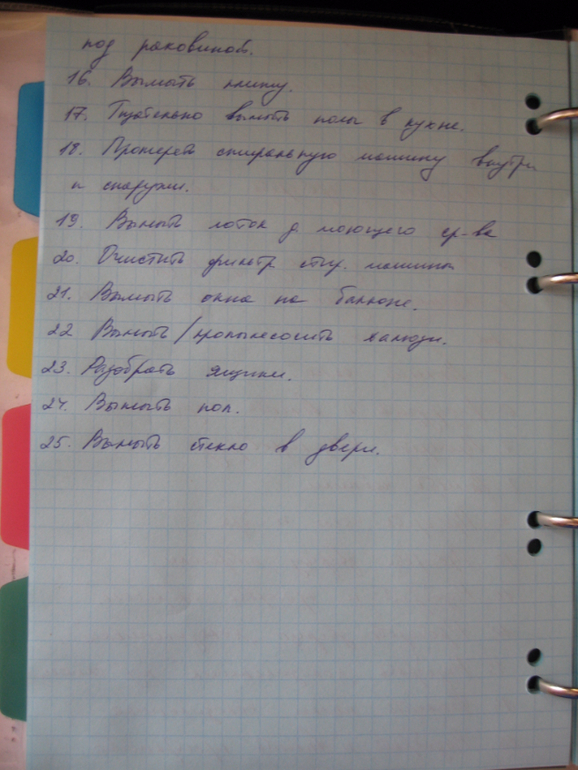 под раковиной.
16. Вымыть плиту.
17. Тщательно вымыть полы в кухне.
18. Протереть стиральную машину внутри
и снаружи.
19. Вымыть лоток д моющего ср-ва
20. Очистить фильтр стир. машины
21. Вымыть окна на балконе.
22 Вымыть/пропылесосить жалюзи.
23. Разобрать ящики.
24. Вымыть пол.
25. Вымыть стекло в двери.